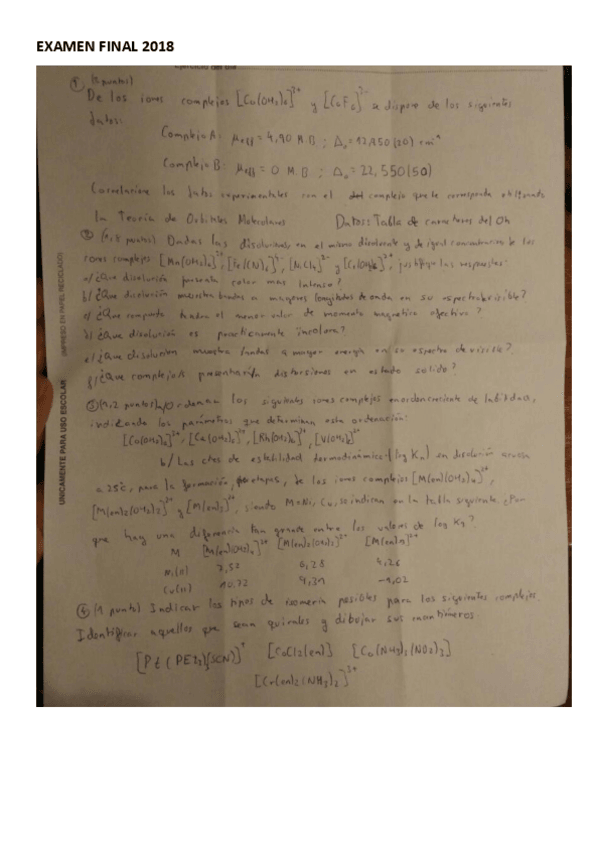 EXAMEN FINAL 2018
① (2 puntos)
De los iones complejos [Co(OH2)6]3+ y [CoF6]3- se dispone de los siguientes
datos:
Complejo A: μeff = 4,90 M.B ; Δo = 12,850 (50) cm-1
Complejo B: μeff = 0 M.B ; Δo = 22,550 (50)
Correlacione los datos experimentales con el complejo que le corresponda utilizando
la Teoría de Orbitales Moleculares Datos: Tabla de caracteres del Oh
② puntos) Dadas las disoluciones en el mismo disolvente y de igual concentración de los
iones complejos [Mn(OH2)6]2+, [Fe(CN)6]4-, [NiCl4]2- y justifique las respuestas:
a) ¿Que disolución presenta color mas intenso?
b) ¿Que disolución muestra bandas a mayores longitudes de onda en su espectro visible?
c) ¿Que compuesto tendra el menor valor de momento magnetico efectivo?
d) ¿Que disolución es practicamente incolora?
e) ¿Que disolucion muestra bandas a mayor energia en su espectro de visible?
f) ¿Que complejo presentaría distorsiones en estado solido?
③ (1,2 puntos) a) Ordena los siguientes iones complejos en orden creciente de labilidad,
indicando los parámetros que determinan esta ordenación:
[Co(OH2)6]2+, [Rh(OH2)6]3+, [V(OH2)6]2+
b) Las ctes de estabilidad termodinámica (log Kn) en disolución acuosa
a 25ºc, para la formación, por etapas, de los iones complejos [M(en)(OH2)4]2+,
[M(en)2(OH2)2]2+ y [M(en)3]2+, siendo M=Ni, Cu, se indican en la tabla siguiente. ¿Por
que hay una diferencia tan grande entre los valores de log K3?
M [M(en)(OH2)4]2+ [M(en)2(OH2)2]2+ [M(en)3]2+
Ni(II) 7,52 6,28 4,26
Cu(II) 10,72 9,31 -1,02
④ (1 punto) Indicar los tipos de isomería posibles para los siguientes complejos.
Identificar aquellos que sean quirales y dibujar sus enantiómeros
[Pt(PEt3)3(SCN)]+ [CoCl2(en)] [Co(NH3)3(NO2)3]
[Cr(en)2(NH3)2]3+
ÚNICAMENTE PARA USO ESCOLAR (IMPRESO EN PAPEL RECICLADO)